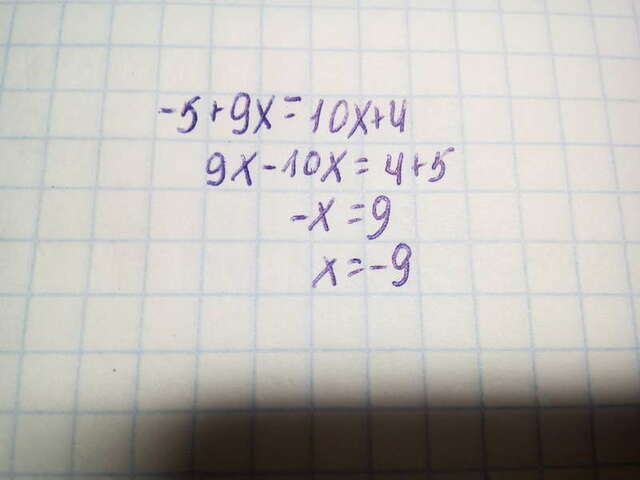 -5+9x=10x+4
9x-10x=4+5
-x=9
x=-9